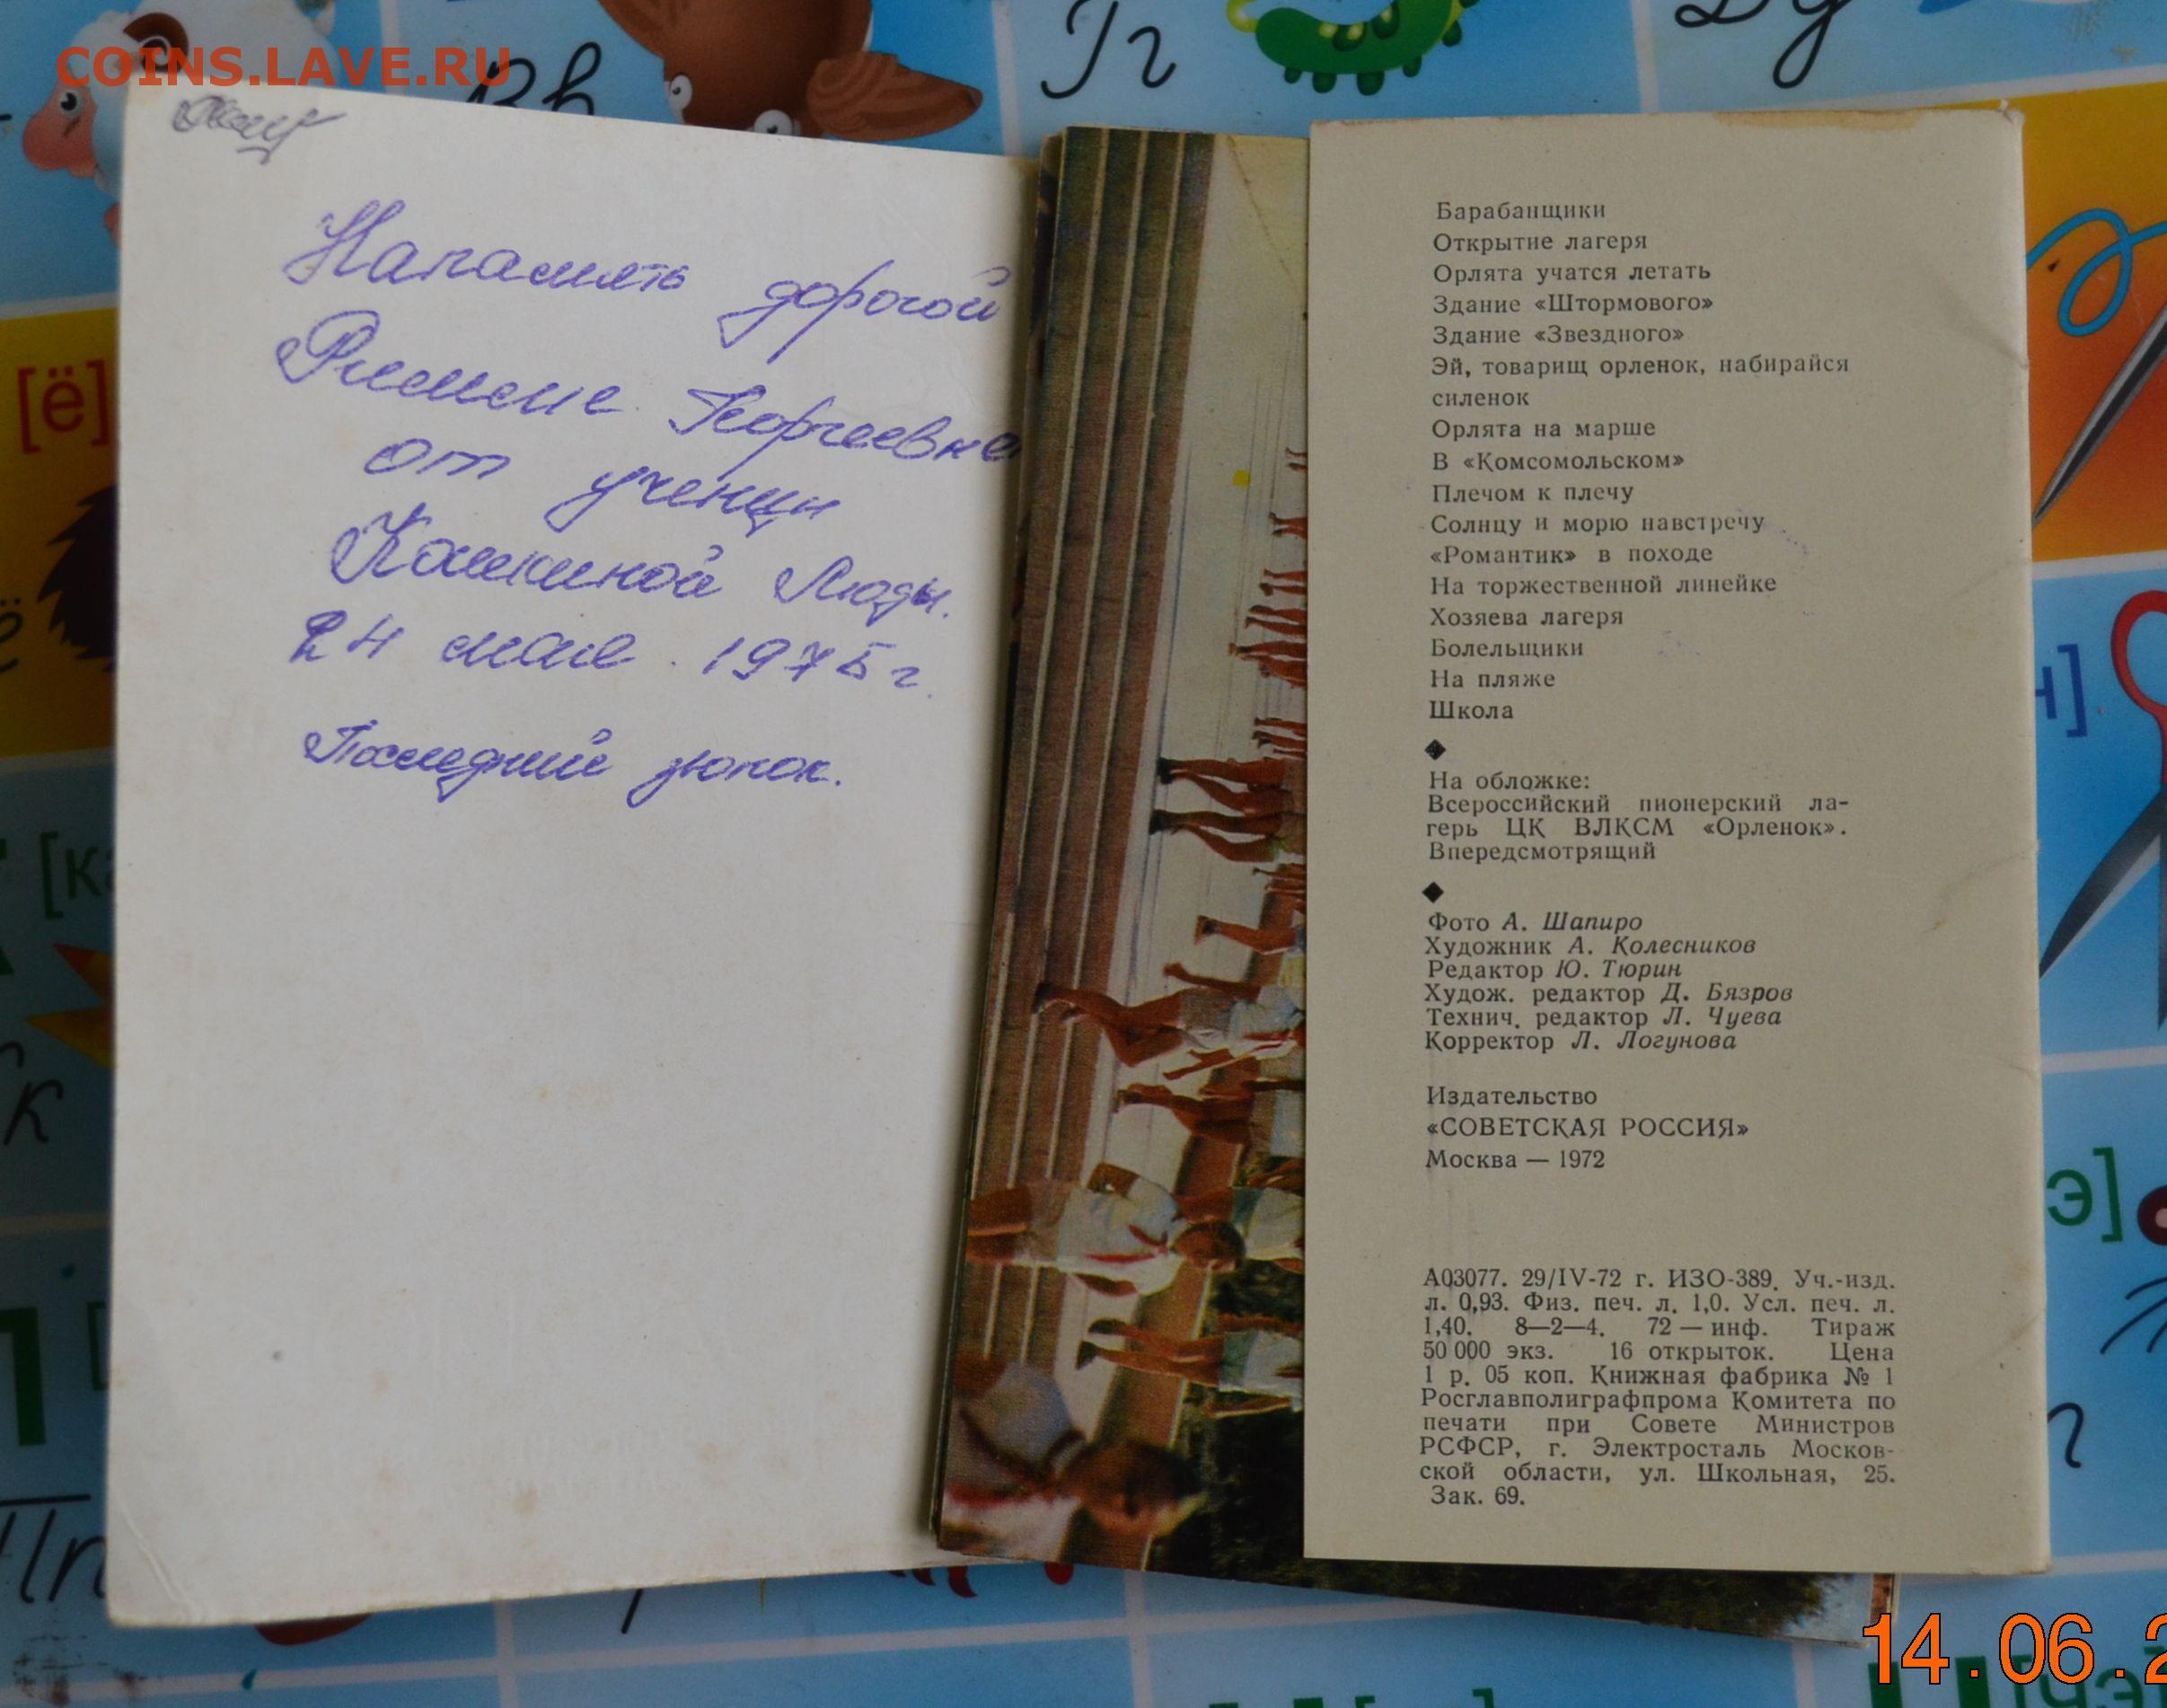 COINS.LAVE.RU
Вв
Гг
[ё]
Напамять дорогой
Римме Георгеевне
от ученци
Кошкиной Люды.
24 мая. 1975 г.
Последний зюнок.
Барабанщики
Открытие лагеря
Орлята учатся летать
Здание «Штормового»
Здание «Звездного»
Эй, товарищ орленок, набирайся
силенок
Орлята на марше
В «Комсомольском»
Плечом к плечу
Солнцу и морю навстречу
«Романтик» в походе
На торжественной линейке
Хозяева лагеря
Болельщики
На пляже
Школа
На обложке:
Всероссийский пионерский ла-
герь ЦК ВЛКСМ «Орленок».
Впередсмотрящий
Фото А. Шапиро
Художник А. Колесников
Редактор Ю. Тюрин
Худож. редактор Д. Бязров
Технич. редактор Л. Чуева
Корректор Л. Логунова
Издательство
«СОВЕТСКАЯ РОССИЯ»
Москва — 1972
А03077. 29/IV-72 г. ИЗО-389. Уч.-изд.
л. 0,93. Физ. печ. л. 1,0. Усл. печ. л.
1,40. 8—2—4. 72 — инф. Тираж
50 000 экз. 16 открыток. Цена
1 р. 05 коп. Книжная фабрика № 1
Росглавполиграфпрома Комитета по
печати при Совете Министров
РСФСР, г. Электросталь Москов-
ской области, ул. Школьная, 25.
Зак. 69.
14.06.2